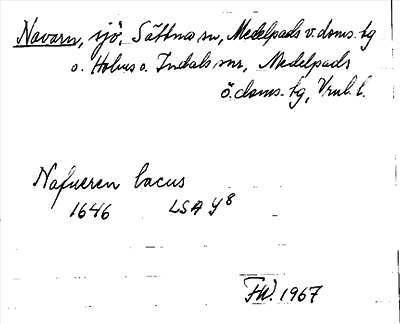 Navarn, sjö, Sättna sn, Medelpads v. doms. tg
o. Holms o. Indals snr, Medelpads
ö. doms. tg, Vnl. l.
Nafueren lacus
1646 LSA Y8
FW. 1967